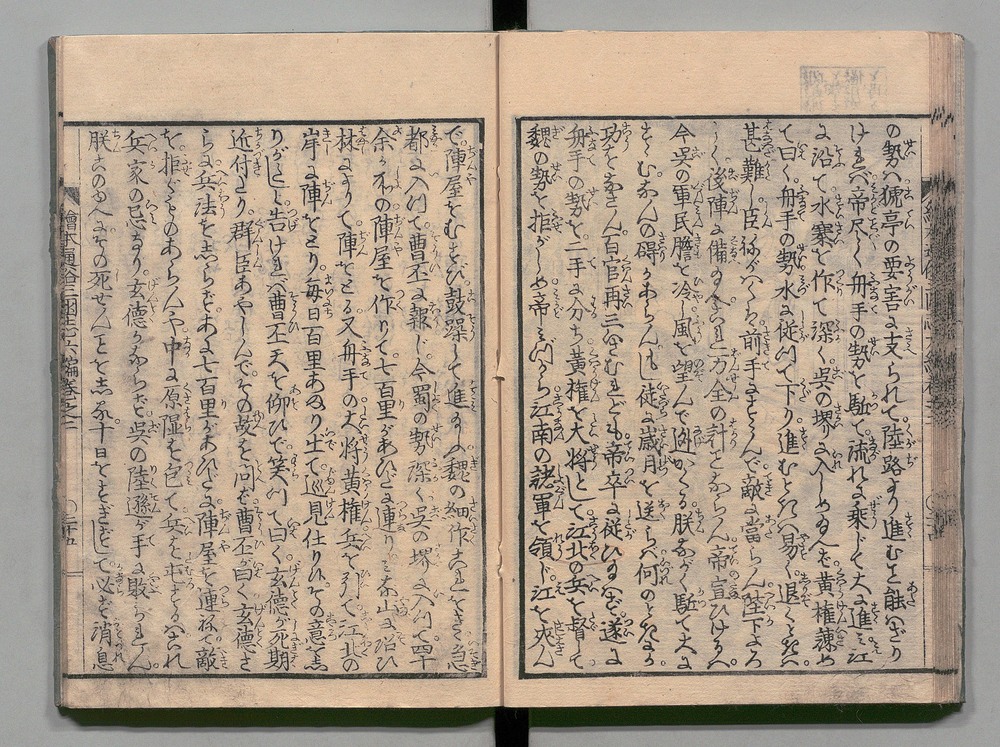 の勢は猇亭の要害に支られて陸路より進むと能はざり
ければ帝尽く舟手の勢を駈て流れに乗じて大に進ミ江
に沿て水寨を作て深く呉の堺に入しめ玉ふを黄権諫め
て曰く舟手の勢水に従つて下り進むときハ易く退くときハ
甚難し臣ねがハくハ前手すゝんで敵に当らん陛下よろ
しく後陣に備玉ふ是万全の計とならん帝宣ひけるハ
今呉の軍民膽を冷し風を望んで迯かくる朕ながく駈て大に
すゝむなんの碍かあらんもし徒に歳月を送らバ何のときか
功をなさん百官再三いさむれども帝卒に従ひ玉ハず遂に
舟手の勢を二手に分ち黄権を大将として江北の兵を督して
魏の勢を拒がしめ帝ミづから江南の諸軍を領じ江を夾ん
で陣屋をむすび鼓躁して進玉ふ魏の細作これをきゝ急
都に入つて曹丕に報じ今蜀の勢深く呉の堺に入つて四十
余ヶ所の陣屋を作りて七百里があひだに連りミな山に沿ひ
林によりて陣をとる又舟手の大将黄権兵を引て江北の
岸に陣をとり毎日百里あまり出て巡見仕り候その意をし
りがたしと告けれバ曹丕天を仰ひで笑つて曰く玄徳が死期
近付たり群臣あやしんでその故を問ば曹丕が曰く玄徳さ
らに兵法をしらずあに七百里があひだに陣屋を連ねて敵
を拒ぐものあらんや中に原隰を包て兵を屯するハこれ
兵家の忌なり玄徳かならず呉の陸孫が手に敗られん
朕このゆへにその死せんことをしる十日をすぎずして必ず消息
繪本通俗三国志六編巻之二
○二十五